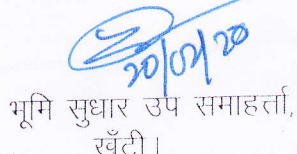 20/02/20
भूमि सुधार उप समाहर्त्ता,
खूँटी।